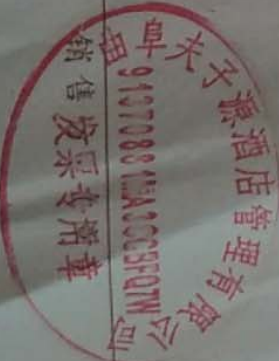 曲阜夫子源酒店管理有限公司
91370881MA3CC5FQ7W
发票专用章
销售